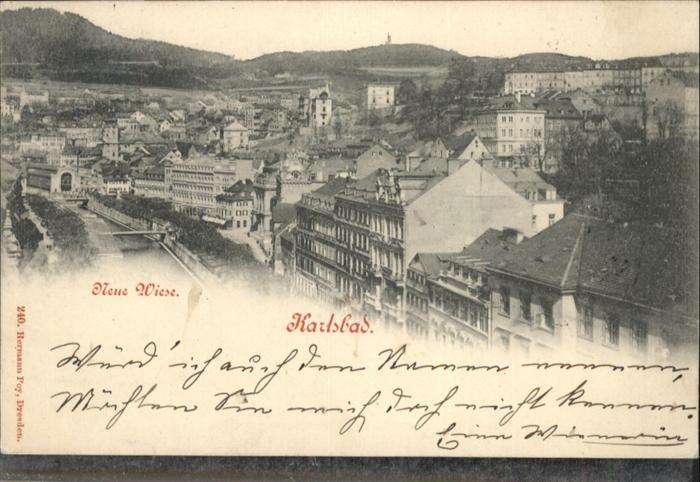 Neue Wiese.
Karlsbad.
240. Hermann Poy, Dresden.
Würd' ich auch den Namen nennen,
Möchten Sie mich doch nicht kennen.
Eine Wienerin